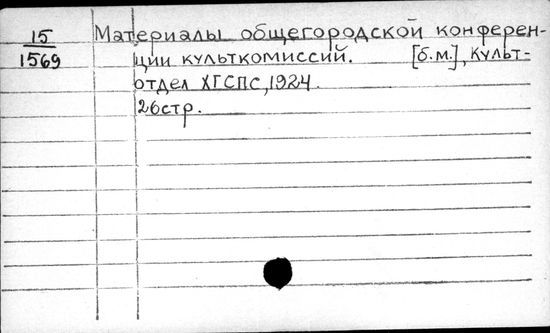 15 Материалы общегородской конферен-
1569 ции культкомиссий. [б.м.], Культ-
отдел ХГСПС, 1924.
26стр.